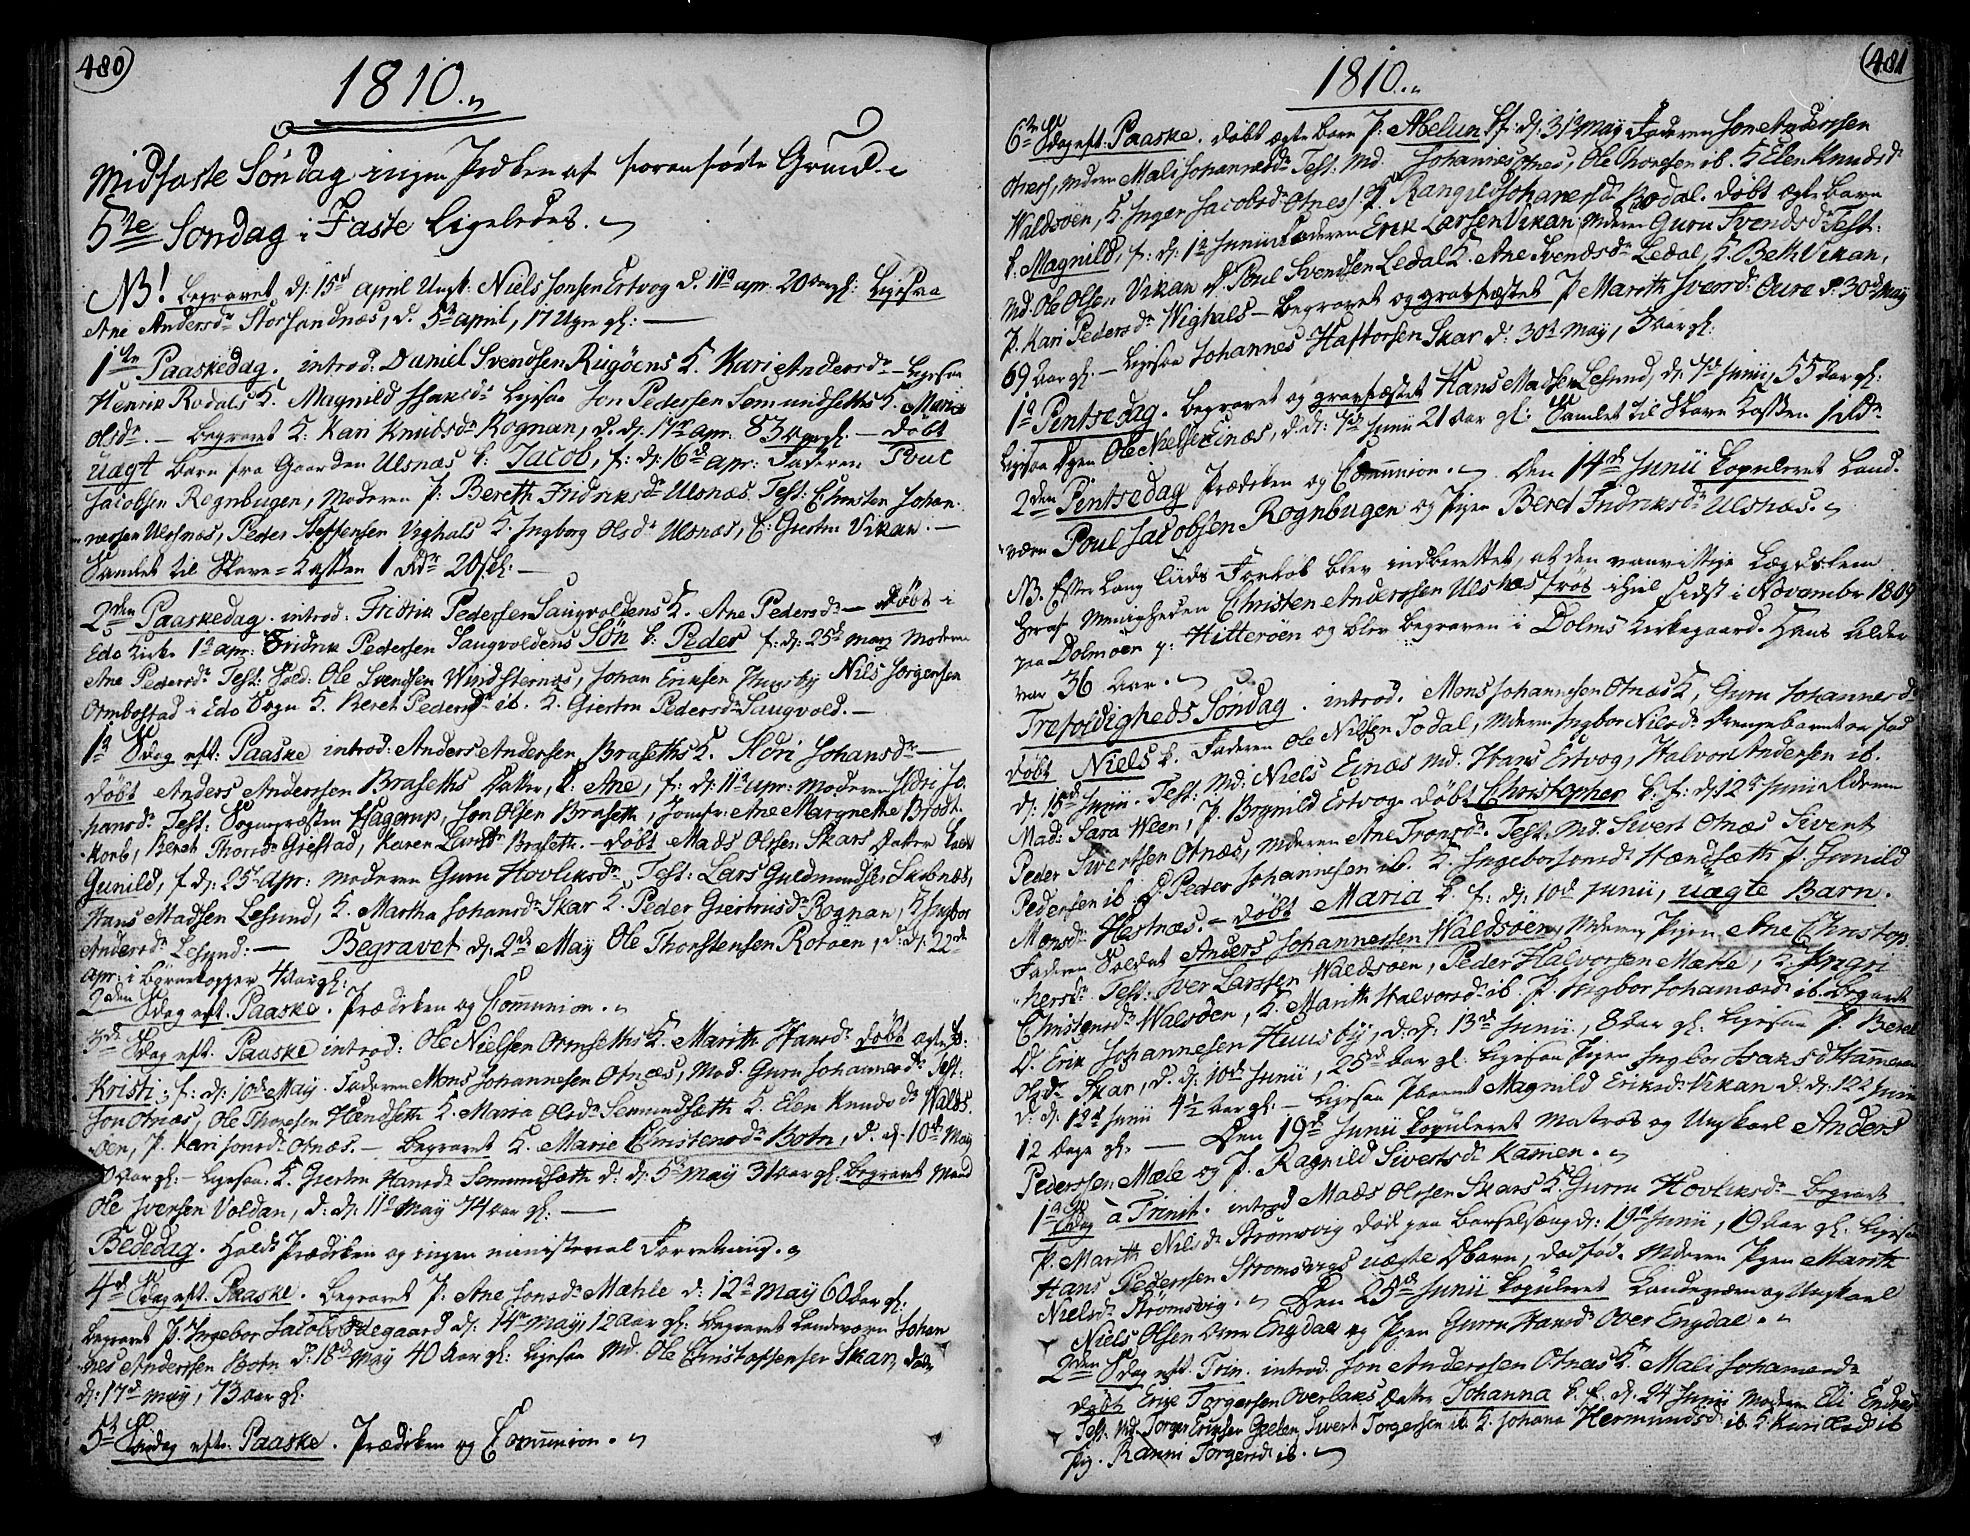 480
1810.
Midfaste Søndag ingen Prediken af foranførte Grund.
5te Søndag i Faste ligeledes.
NB! Begravet d: 15d april Ungk: Niels Jonsen Ertvog d. 11d apr. 20 aar gl: Ligesaa
Ane Andersdr Storsandnæs, d. 5d april, 17 Uger gl:
1ste Paaskedag. introd: Daniel Svendsen Rugöens K. Kari Andersdr — Ligesaa
Henrik Rodals K. Magnild Isaksdr Ligesaa Jon Pedersen Semundseths K. Maria
Olsdr. — Begravet K: Kari Knudsdr Rognan, d. d: 17d apr: 83 aar gl. — Døbt
uægt Barn fra Gaarden Ulsnæs k: Jacob, f: d: 16d apr: Faderen Poul
Jacobsen Rognbugen, Moderen P: Bereth Fridriksdr Ulsnæs. Test: Christen Johan
nessen Ulsnæs, Peder Steffensen Vighals K. Ingborg Olsdr Ulsnæs, K: Giertru Vikan. —
Samlet til Skave-Kassen 1 Rdr 20 sk: —
2den Paaskedag. introd: Fridrik Pedersen Saugvoldens K. Ane Pedersdr — Døbt i
Edø Kirke 1d apr: Fridrik Pedersen Saugvoldens Søn k: Peder f: d: 25d marz Moderen
Ane Pedersdr Test: Sold: Ole Svendsen Windsternæs, Johan Eriksen Huusby Nils Jörgensen
Ormbostad i Edø Sogn K. Beret Pedersdr ib. K. Giertru Pedersdr Saugvold. —
1d Sdag eft. Paaske introd: Anders Andersen Braseths K. Sidri Johansdr —
døbt Anders Anderssen Braseths Datter, k: Ane, f: d: 11d apr: moderen Sidri Jo
hansdr Test: Sognepræsten Hagerup, Jon Olsen Braseth, Jomfr: Ane Margrethe Brodt
korb, Beret Thoresdr Giestad, Karen Larsdr Braseth. — Døbt Mads Olsen Skars Datter kaldt
Gunild, f. d: 25d apr: moderen Guru Hovliksdr Test: Lars Guldmundsen Skibnæs,
Hans Madsen Lesund, K. Martha Johansdr Skar K. Peder Giertrusdr Rognan, K Ingbor
Andersdr Lesund: — Begravet d: 2d May Ole Thorstensen Rotøen, d: d: 22d
apr: i børnekopper 4 aar gl:
2den Sdag eft. Paaske. Prædiken og Communion.
3d Sdag eft. Paaske introd: Ole Nielsen Ormseths K. Marith Hansdr døbt ægte B:
Kristi, f: d: 10d May. Faderen Mons Johannesen Otnæs, Mod. Guru Johannesdr Test:
Jon Otnæs, Ole Thoresen Hændseth K. Maria Olsdr Semundsæth K. Elen Knudsdr Walds
øen, P. Kari Jonsdr Otnæs. — Begravet K. Marie Christensdr Botn, d. d: 10d May
aar gl: — Ligesaa K. Giertru Hansdr Semundsæth d: d: 5d May 31 aar gl: Begravet Mand
Ole Iversen Voldan, d: d: 11d May 74 aar gl:
Bededag. Holdt Prædiken og ingen ministerial Forretning.
4d Sdag eft. Paaske. Begravet P. Ane Jonsdr Mæhle d: 12d May 60 aar gl:
Begravet P. Ingebor Jacobsdr Ødegaard d: 14d May, 12 aar gl: Begravet Landeværn Johan
nes Anderssen Botn d: 18d May 40 aar gl: Ligesaa Md. Ole Christoffersen Skar, døde
d: 17d May, 73 aar gl:
5d Søndag eft. Paaske. Prædiken og Communion.
481
1810.
6te Sdag eft. Paaske. Døbt ægte Barn P: Abelun k f: d: 31d May Faderen Jon Anderssen
Otnes, Mderen Mali Johannesdr Test: Md. Johannes Otnes, Ole Thoresen ib. K Elen Knudsdr
Waldsöen, K. Inger Jacobsdr Otnes, P. Rangild Johanesdr Rodal. Døbt ægte Barn
k: Magnild, f: d: 1d Junii Faderen Erik Larsen Vikan, Mderen Guru Svendsdr Test:
Md. Ole Olsen Vikan S Poul Svendsen Ledal K. Ane Svendsdr Ledal, K. Beth Vikan,
P. Kari Pedersdr Wighals — Begravet og gravfæstet P Marith Iversdr Aure d. 30d May
69 aar gl. — Ligesaa Johannes Haftorsen Skar d: 30d May, 3 aar gl:
1d Pintsedag. Begravet og gravfæstet Hans Madsen Lesund, d: 7d Junii, 55 aar gl:
Ligesaa Pigen Ole Nielsen Einæs, d: d: 7d Junii 21 aar gl: Samlet til Skave Kassen 1 Rdr.
2den Pintsedag Prædiken og Communion. Den 14d Junii kopuleret Land.
værn Poul Jacobsen Rognbugen og Pigen Beret Fridriksdr Ulsnæs.
NB. Efter Lang Tiids Forløb blev indberettet, at den vanvittige Lægdslem
heraf Menigheden Christen Anderssen Ulsnæs frøs ihiel sidst i November 1809
paa Dolmøen p: Hitterøen og blev begraven i Dolms Kirkegaard. Hans Alder
var 36 Aar.
Trefoldigheds Søndag. introd. Mons Johannesen Otnæs K, Guru Johannesdr
døbt Niels k. Faderen Ole Nielsen Todal, Mderen Ingbor Nilsdr Drengebarnet er fød
d: 15d Junii. Test. Md: Niels Einæs Md. Hans Ertvog, Halvor Andersen ib.
Mad: Sara Ween, P. Brynild Ertvog. Døbt Christopher k. f: d: 12d Junii Faderen
Peder Sivertsen Otnæs, Mderen Ane Tronsdr. Test. Md. Sivert Otnæs Sivert
Pedersen ib. D. Peder Johannesen ib. K. Ingebor Jonsdr Hændsæth P. Gunild
Monsdr Hestnæs. — Døbt Maria k. f: d: 10d Junii, uægte Barn.
Faderen Soldat Anders Johannessen Waldsøen, Mderen Pigen Ane Christop
hersdr Test: Iver Larssen Waldsøen, Peder Halvorsen Mæhle, K. Ingri
Christensdr Walsøen, K. Marith Halvorsdr ib. P. Ingbor Johannesdr ib. Begravet
D. Erik Johannesen Huusbÿ, d: d: 13d Junii, 8 aar gl. Ligesaa P. Beret
Olsdr Skar, d. d: 10d Junii, 25 aar gl. Ligesaa Pigen Ingbor Isaksdr Hammeren
d: d: 12d Junii 4½ aar gl. — Ligesaa Pbarnet Magnild Eriksdr Vikan d: d: 12d Junii
12 dage gl: — Den 19d Junii kopuleret Matros og Ungkarl Anders
Pederssen Mæle og P. Ragnild Sivertsdr Kamen.
1d Sdag a Trinit. introd Mads Olsen Skars K Guru Hovliksdr — Begravet
P. Marith Nilsdr Strömsvig død paa Barselsæng d: 19d Junii, 19 aar gl: Ligesaa
Hans Pederssen Strömsvigs uægte Dbarn, dødfød. Mderen Pigen Marith
Nielsdr Strömsvig. Den 25d Junii kopuleret Landeværn og Ungkarl
Niels Olsen Over Engdal og Pigen Guru Hansdr Over Engdal.
2den Sdag eft. Trin. introd. Jon Anderssen Otnæs K. Mali Johannesdr
døbt Erik Torgersen Overlands Datter Johanna k. f. d. 24 Junii Moderen Eli Endresdr
Test. Md. Torger Eriksen Geelen, Sivert Torgersen ib. K. Johana Hermundsdr ib. K. Kari Olsd ib
Pig. Ranni Torgersd. ib.